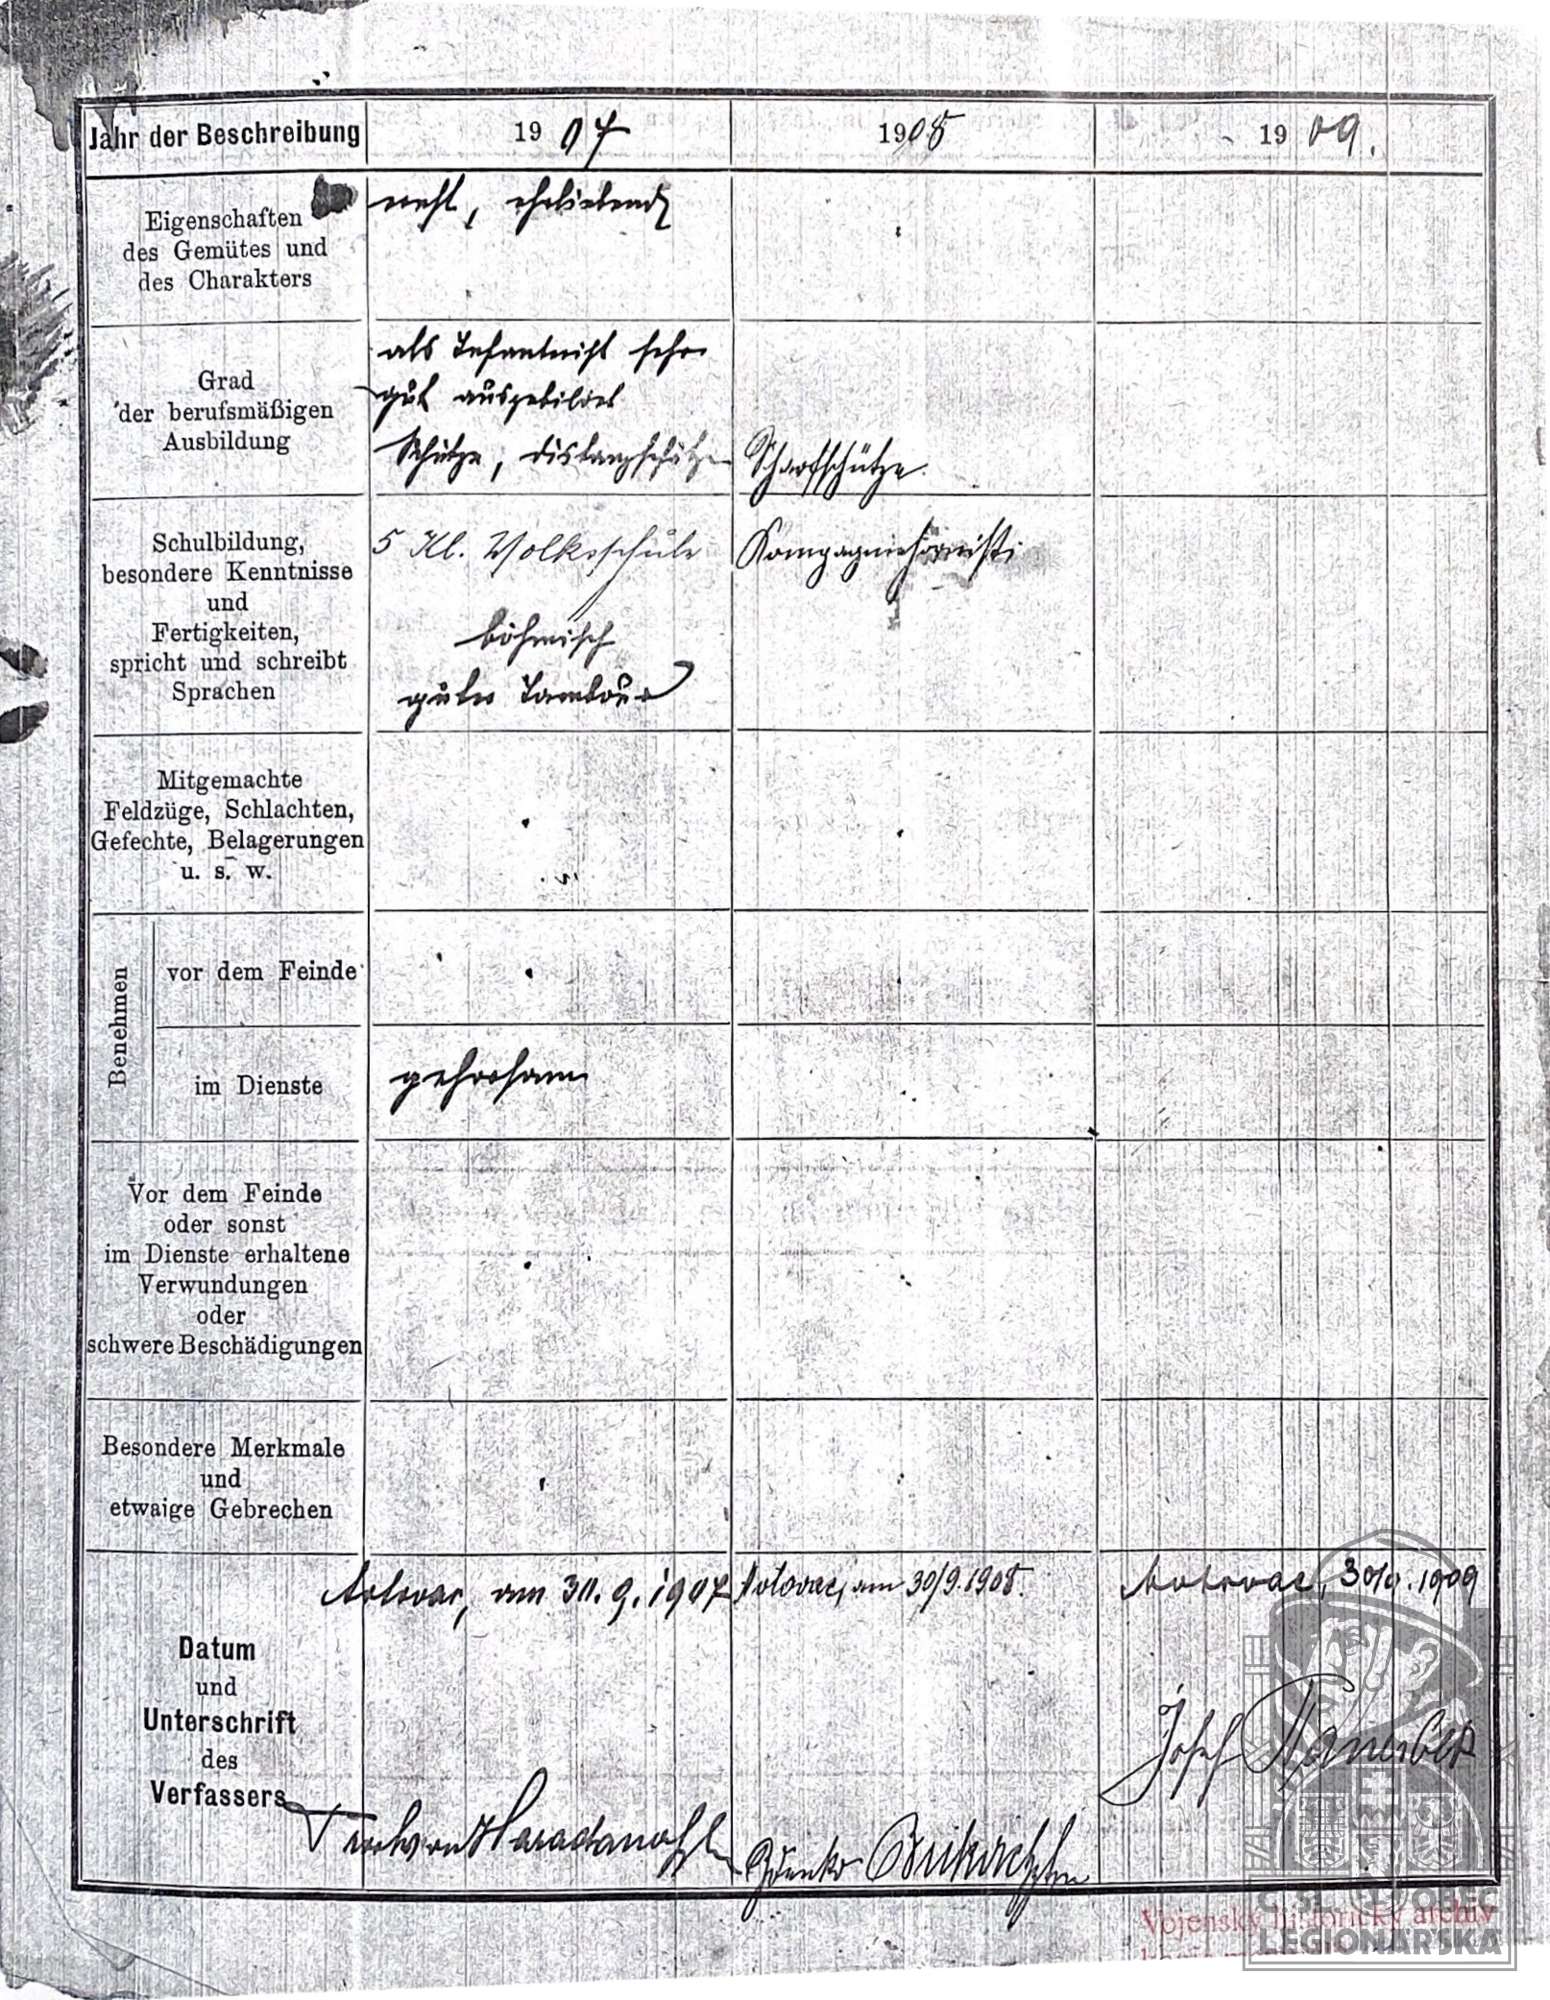 Jahr der Beschreibung 1907 1908 1909.
Eigenschaften
des Gemütes und
des Charakters
ernst, ehrliebend
Grad
der berufsmäßigen
Ausbildung
als Infanterist sehr
gut ausgebildet
Schütze, Distanzschätzer
Scharfschütze.
Schulbildung,
besondere Kenntnisse
und
Fertigkeiten,
spricht und schreibt
Sprachen
5 Kl. Volksschule
böhmisch
guter Tambour
Kompagniehornist
Mitgemachte
Feldzüge, Schlachten,
Gefechte, Belagerungen
u. s. w.
Benehmen
vor dem Feinde
im Dienste
gehorsam
Vor dem Feinde
oder sonst
im Dienste erhaltene
Verwundungen
oder
schwere Beschädigungen
Besondere Merkmale
und
etwaige Gebrechen
Datum
und
Unterschrift
des
Verfassers
am 30.9.1907
am 30/9.1908.
30/9.1909
Zdenko
Josef
Vojenský historický archiv
ČSOBEC
LEGIONÁŘSKÁ